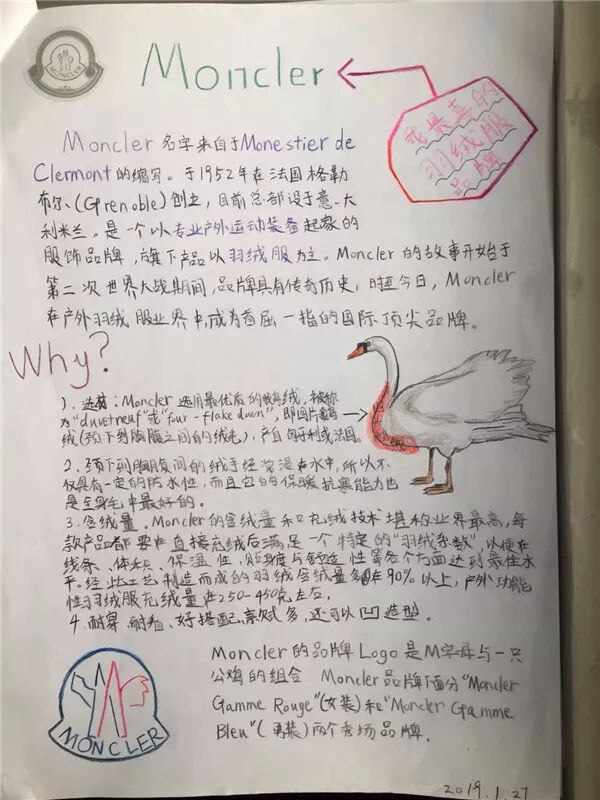 MONCLER
Moncler
我最喜的
羽绒服
品牌
Moncler名字来自于Monestier de
Clermont的缩写。于1952年在法国格勒
布尔(Grenoble)创立,目前总部设于意大
利米兰。是一个以专业户外运动装备起家的
服饰品牌,旗下产品以羽绒服为主。Moncler的故事开始于
第二次世界大战期间,品牌具有传奇历史,时至今日,Moncler
在户外羽绒服业界中,成为首屈一指的国际顶尖品牌。
Why?
1.选材:Moncler选用最优质的鹅绒,被称
为"duvetneuf"或"four-flake down",即四片鹅
绒(颈下到胸腹之间的绒毛),产自匈牙利或法国。
2.颈下到胸腹间的绒毛经常浸在水中,所以不
仅具有一定的防水性,而且它的保暖抗寒能力也
是全身毛中最好的。
3.含绒量。Moncler的含绒量和充绒技术堪称业界最高,每
款产品都要在直接充绒后满足一个特定的"羽绒系数",以便在
线条、体积、保温性,贴身度与舒适性等各个方面达到最佳水
平。经此工艺制造而成的羽绒含绒量多在90%以上,户外功能
性羽绒服充绒量在250-450克左右。
4.耐穿、耐看、好搭配、款式多,还可以凹造型。
Moncler的品牌Logo是M字母与一只
公鸡的组合 Moncler品牌下面分"Moncler
Gamme Rouge"(女装)和"Moncler Gamme
Bleu"(男装)两个秀场品牌。
MONCLER
2019.1.27